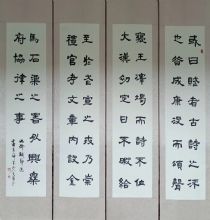 或曰賦者古詩之流
也昔成康沒而頌聲
寢王澤竭而詩不作
大漢初定日不暇給
至於武宣之世乃崇
禮官考文章內設金
馬石渠之署外興樂
府協律之事